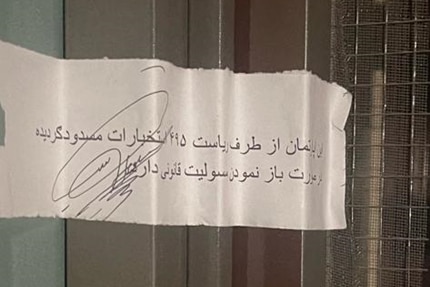 این اپارتمان از طرف ریاست ۴۹۵ استخبارات مسدود گردیده
در صورت باز نمودن مسولیت قانونی دارد